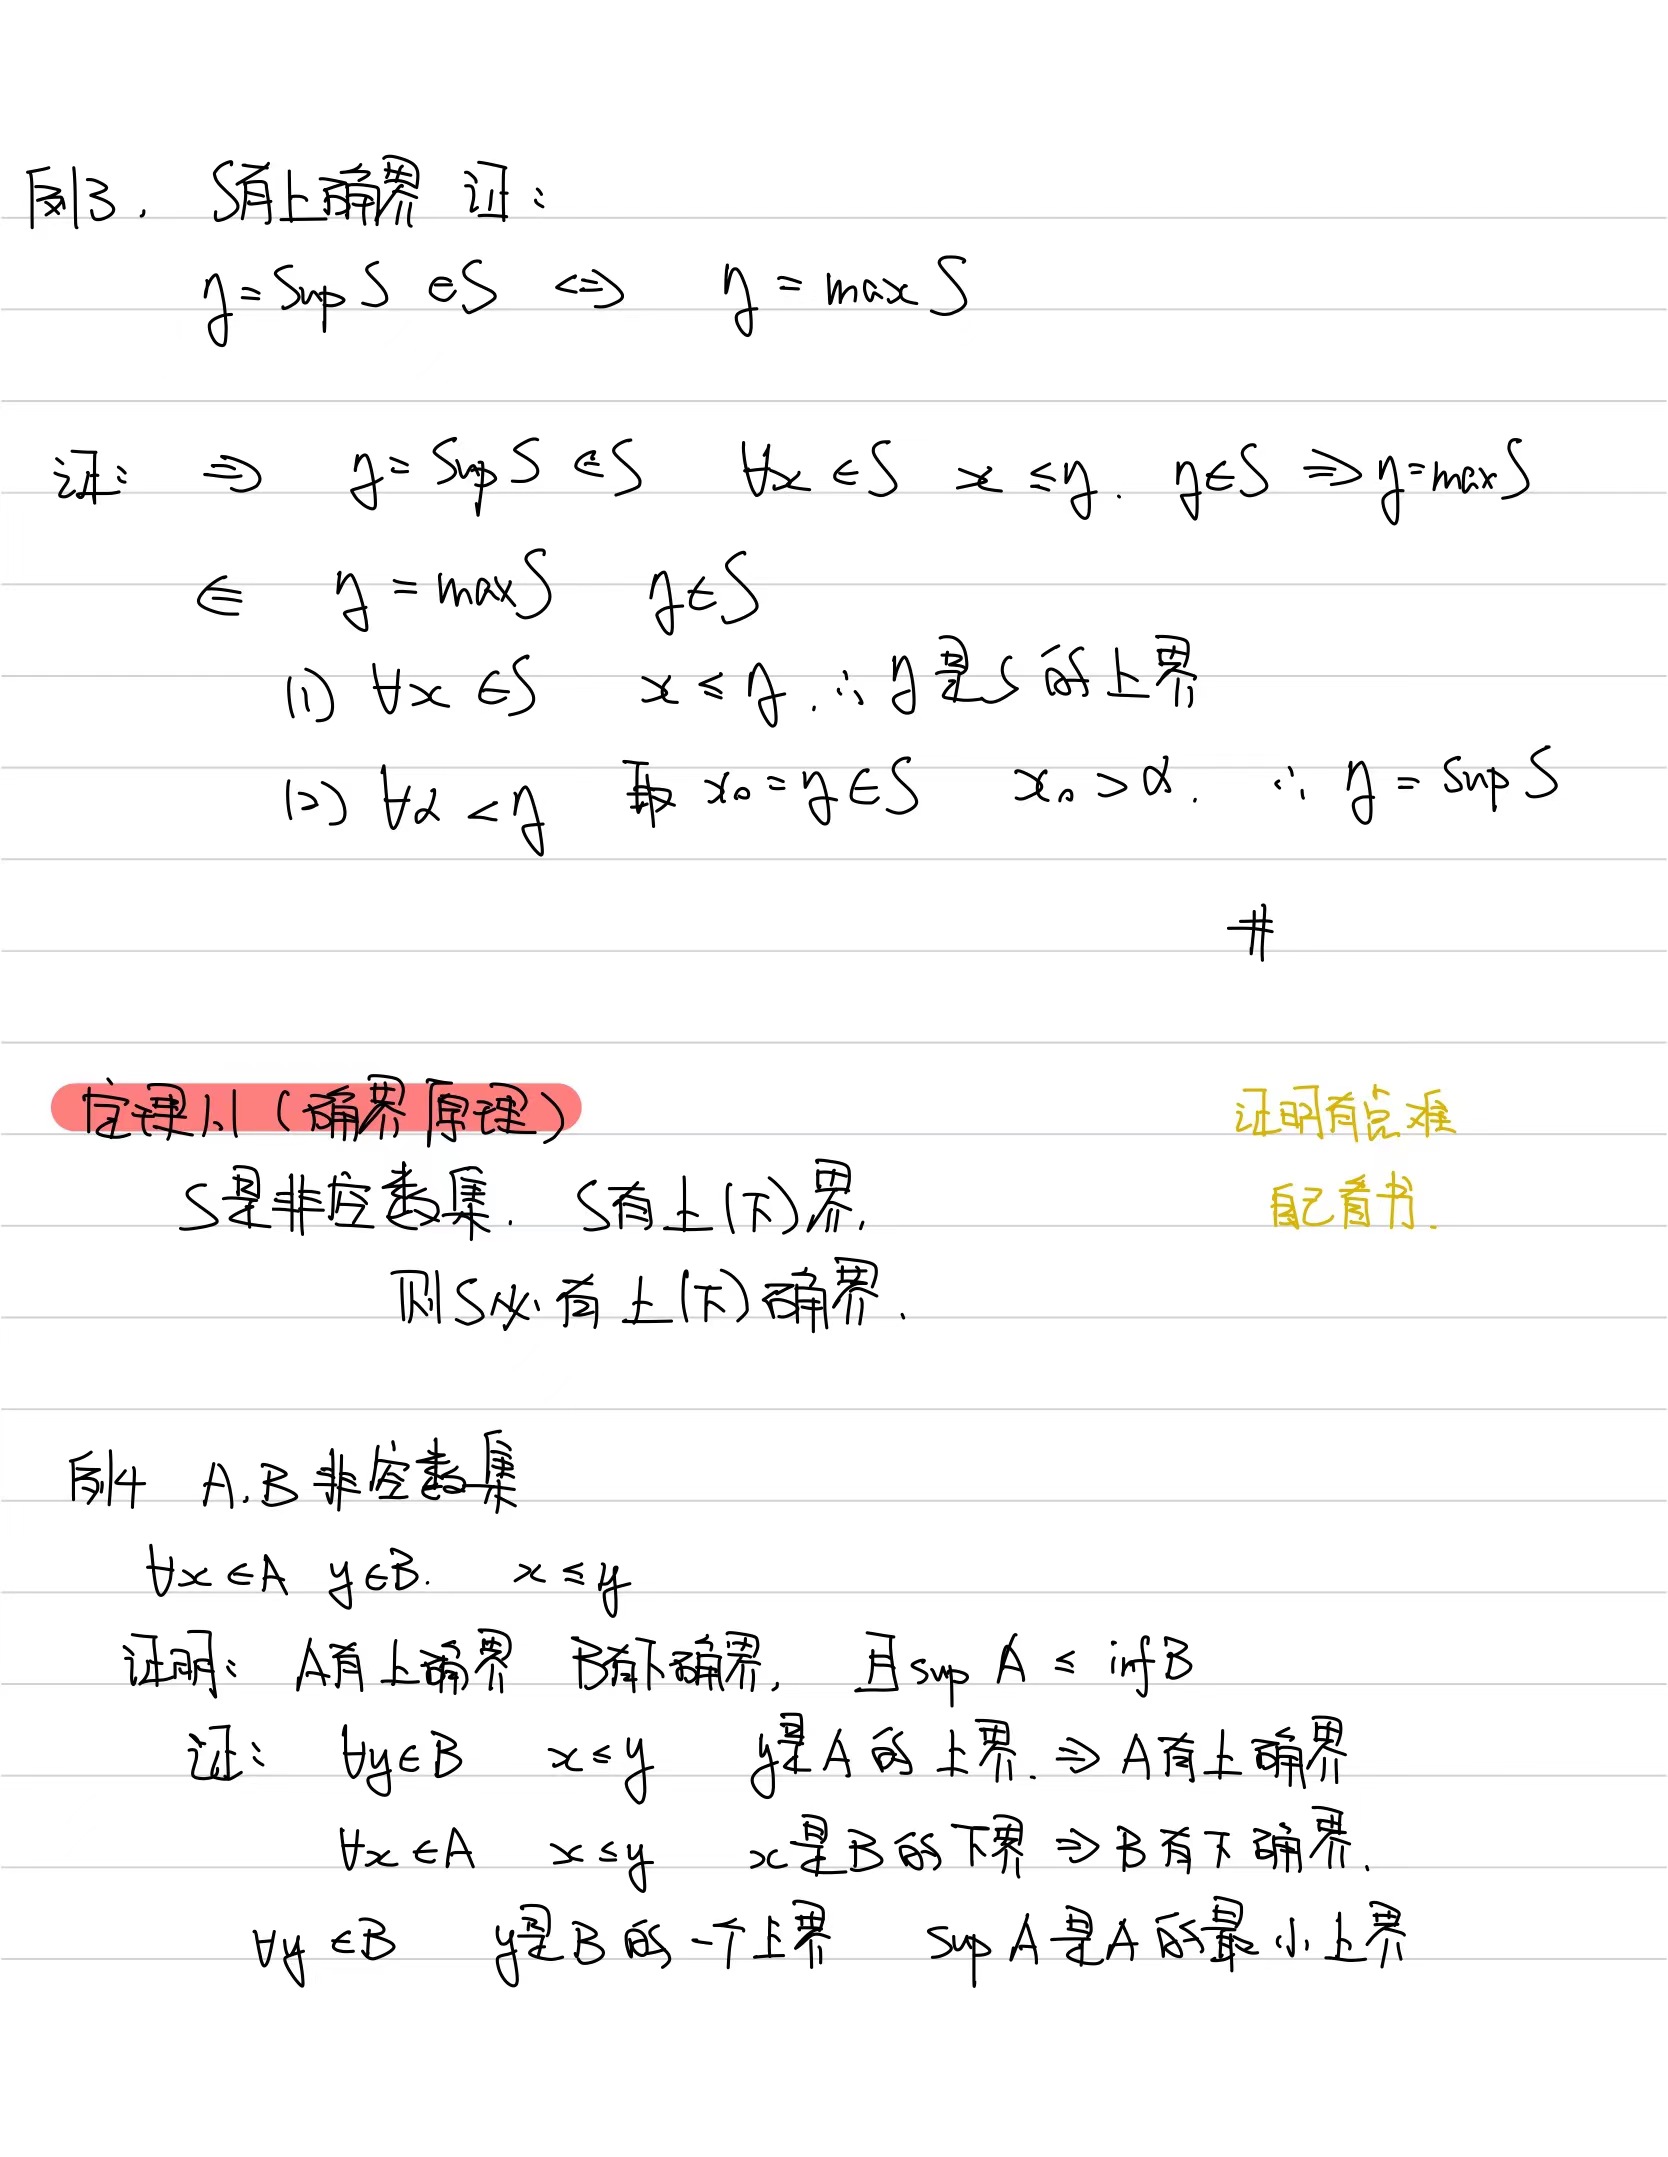 例3. S有上确界 证:
η = Sup S ∈ S ⇔ η = max S
证: ⇒ η = Sup S ∈ S ∀x ∈ S x ≤ η. η ∈ S ⇒ η = max S
⇐ η = max S η ∈ S
(1) ∀x ∈ S x ≤ η. ∴ η是S的上界
(2) ∀α < η 取 x₀ = η ∈ S x₀ > α. ∴ η = Sup S
#
定理1.1 (确界原理)
证明有点难
S是非空数集. S有上(下)界,
自己看书.
则S必有上(下)确界.
例4 A.B非空数集
∀x ∈ A y ∈ B. x ≤ y
证明: A有上确界 B有下确界, 且 sup A ≤ inf B
证: ∀y ∈ B x ≤ y y是A的上界. ⇒ A有上确界
∀x ∈ A x ≤ y x是B的下界 ⇒ B有下确界.
∀y ∈ B y是B的一个上界 Sup A是A的最小上界